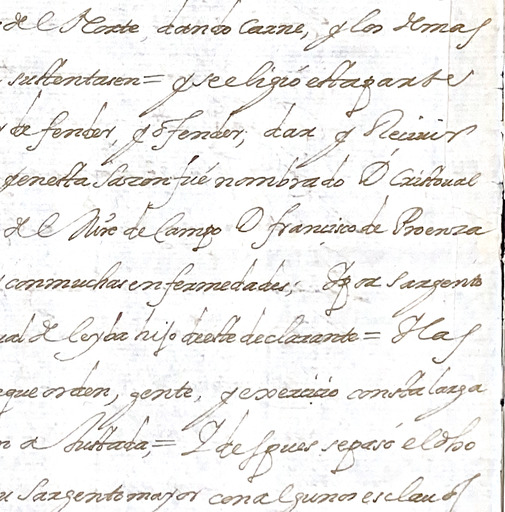 del Norte, dando Carne, y los demas
sustentasen = y se eligió esta parte
defender, y ofender, dar y Recivir
y en esta Sazon fué nombrado D. Cristoval
del Mro de Campo D. francisco de Proenza
con muchas enfermedades; Y por Sargento
de leyba hijo deeste declarante = Y las
que orden, gente, y exercicio consta larga
a Justada, = Y despues se pasó el dho
Sargento mayor con algunos esclavos